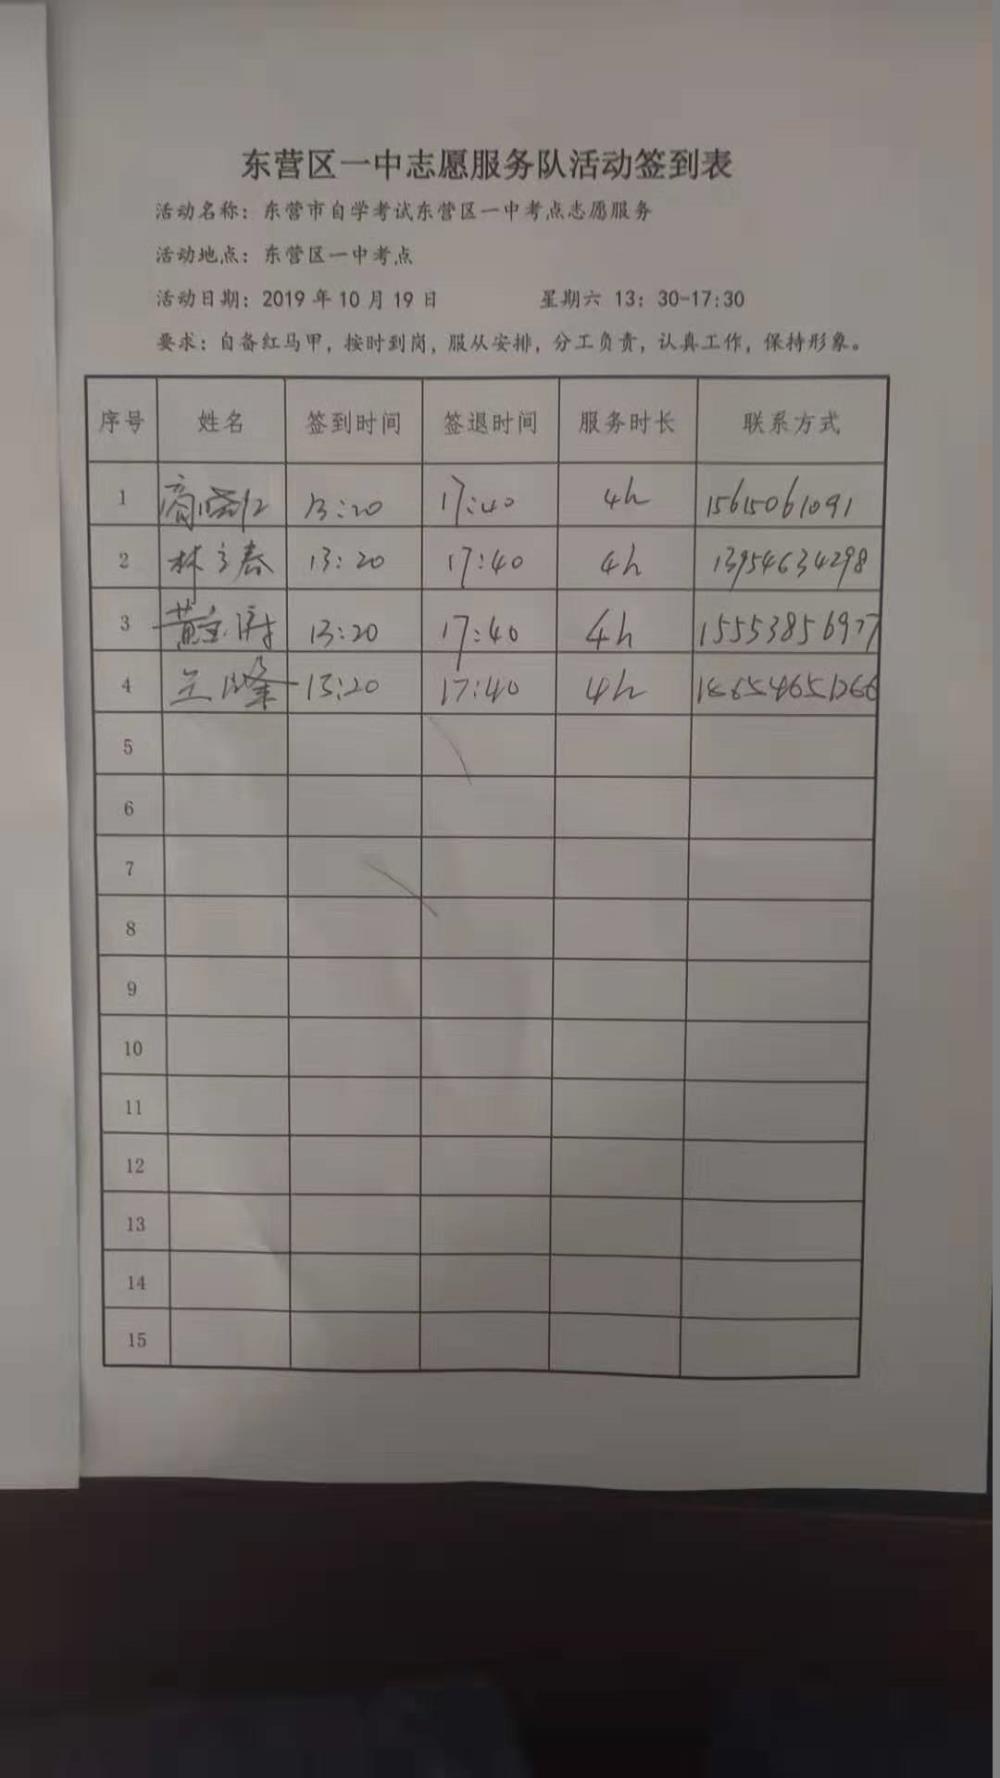 东营区一中志愿服务队活动签到表
活动名称：东营市自学考试东营区一中考点志愿服务
活动地点：东营区一中考点
活动日期：2019 年 10 月 19 日 星期六 13：30-17:30
要求：自备红马甲，按时到岗，服从安排，分工负责，认真工作，保持形象。
序号 姓名 签到时间 签退时间 服务时长 联系方式
1 13:20 17:40 4h 15615061091
2 林立春 13:20 17:40 4h 13954634298
3 13:20 17:40 4h 15553856977
4 兰峰 13:20 17:40 4h
5
6
7
8
9
10
11
12
13
14
15